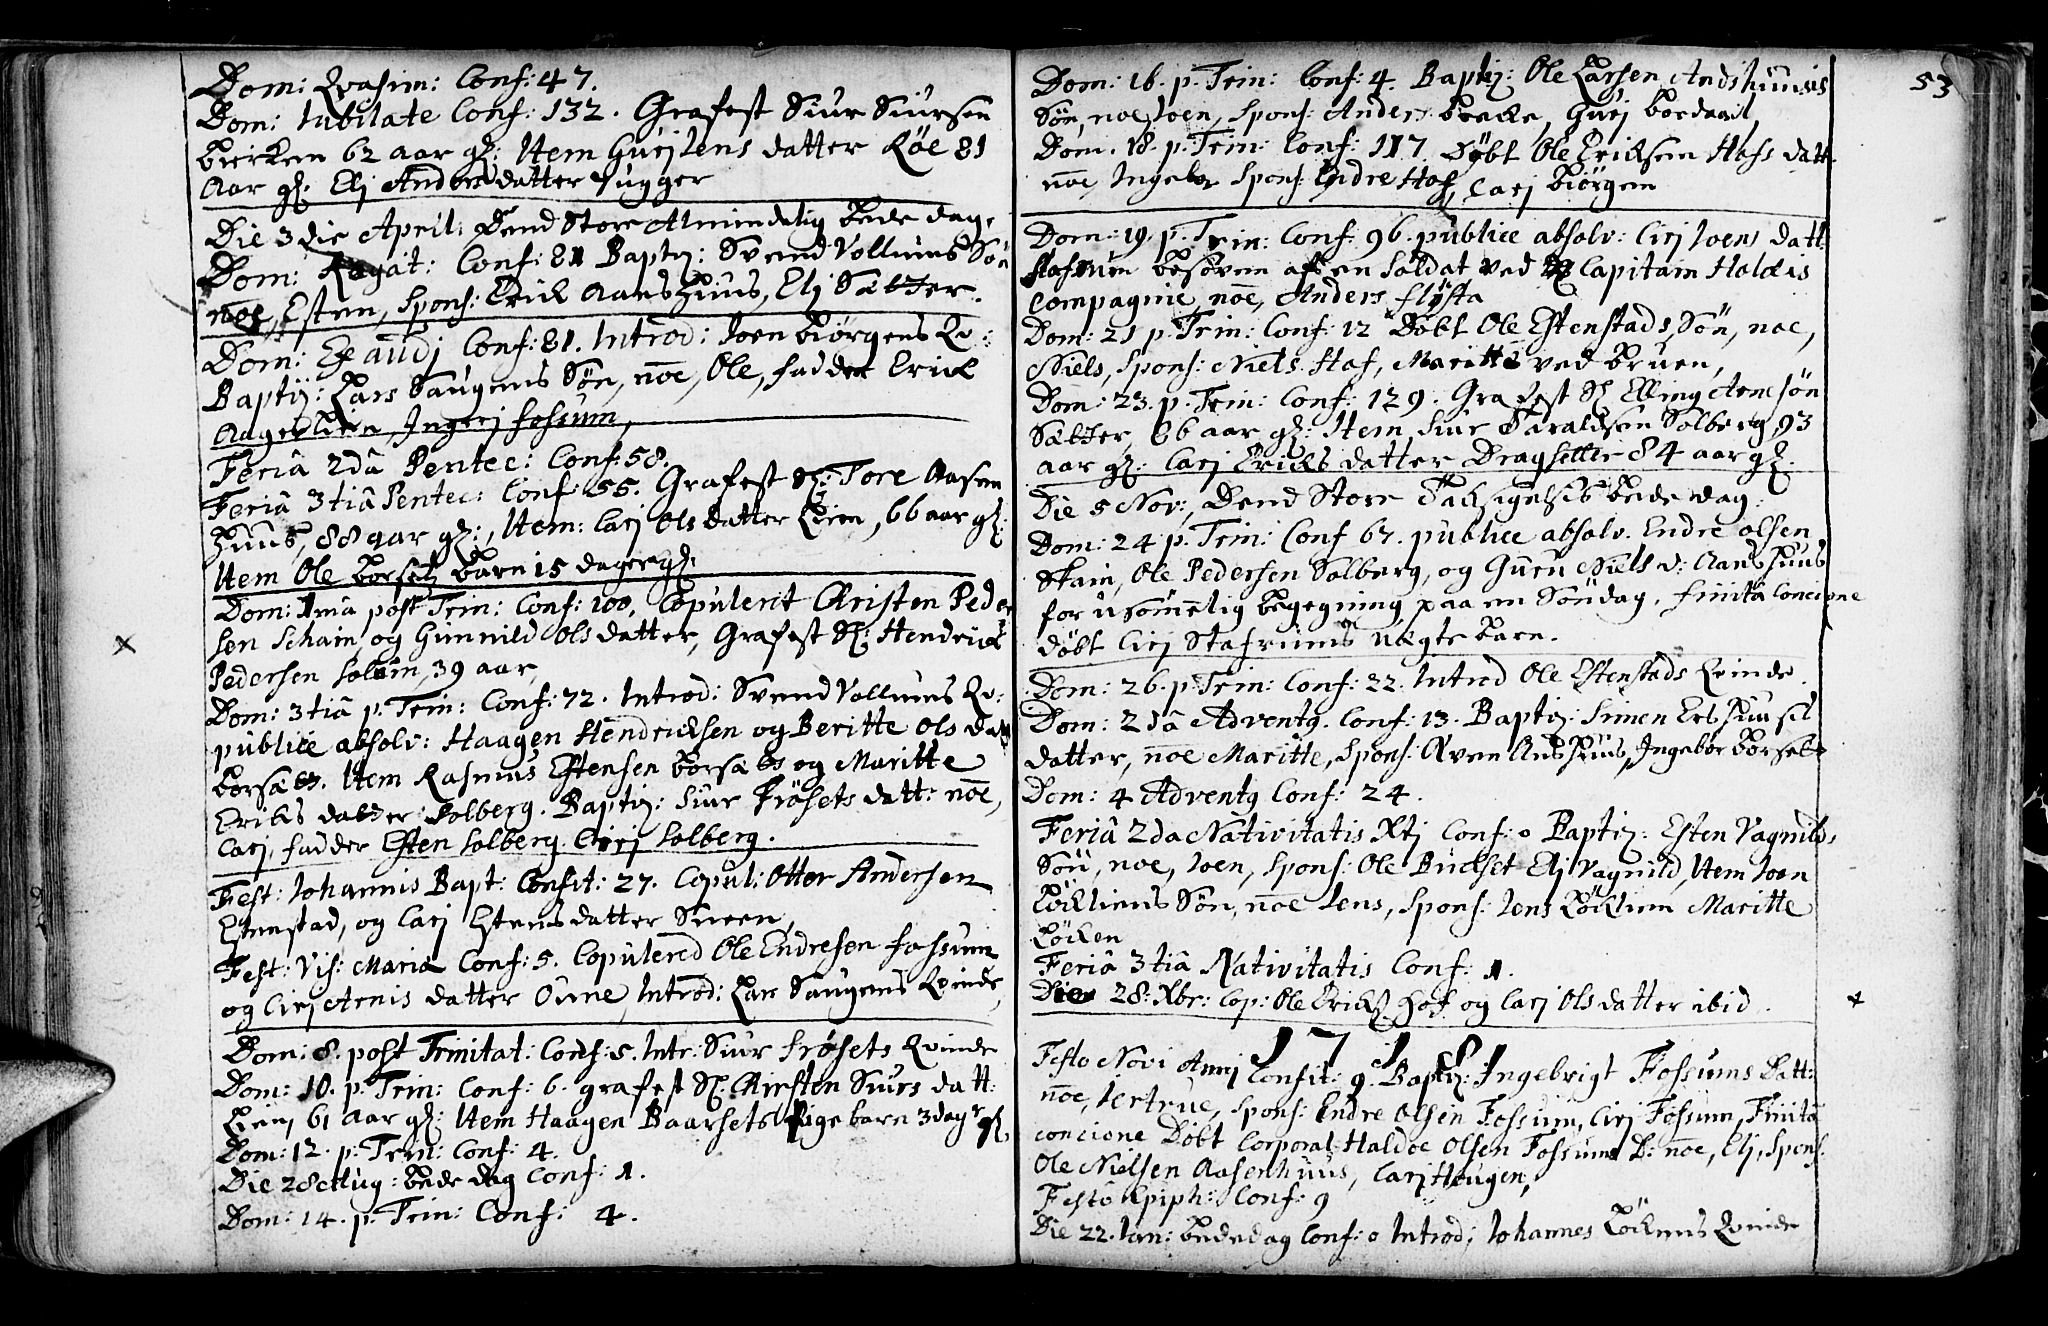 Dom: Qvasim: Conf: 47.
Dom: Iubilate Conf: 132. Grafest Siur Siursen
Birken 62 aar gl: Item Gurj Iens datter Røe 81
Aar gl: Elj Anders datter Rugger
Die 3die April: Dend Store Almindelig Bede dag.
Dom: Rogat: Conf: 81 Baptiz: Svend Vollums Søn
noe, Esten, Spons: Erick Aanshuus, Elj Sætter.
Dom: Exaudj Conf: 81. Introd: Joen Biørgens Qv:
Baptiz: Lars Haugens Søn, noe, Ole, fadder Erick
Aagerlien, Ingerj Fossum,
Feriâ 2dâ Pentec: Conf: 58.
Feriâ 3tiâ Pentec: Conf: 55. Grafest Sl: Tore Aasen
huus, 88 aar gl:, Item: Carj Ols datter Lien, 66 aar gl:
Item Ole Borsets Barn 15 dager gl:
Dom: 1ma post Trin: Conf: 100. Copulerit Christen Peder
sen Schain og Gunnild Ols datter, Grafest Sl: Hendrick
Pedersen Solem, 39 aar,
Dom: 3tiâ p. Trin: Conf: 72. Introd: Svend Vollums Qv:
publice absolv: Haagen Hendricksen og Beritte Ols datt
Borsæts. Item Rasmus Estensen Borsæts og Maritte
Ericks datter Solberg. Baptiz: Siur Frøsets datt: noe,
Carj, fadder Esten Solberg Cirj Solberg.
Fest: Iohannis Bapt: Confit: 27. Copul: Otter Andersen
Estenstad, og Carj Estens datter Sneen,
Fest: Vis: Mariæ Conf: 5. Copulered Ole Endresen Fossum
og Cirj Arnis datter Oune, Introd: Lars Haugens Qvinde,
Dom: 8. post Trinitat: Conf: 5. Intr: Siur Frøsets Qvinde
Dom: 10. p. Trin: Conf: 6. grafest Sl: Kirsten Siurs datt:
Lien, 61 Aar gl: Item Haagen Baarsets Pige barn 3 dagr gl.
Dom: 12. p. Trin: Conf: 4.
Die 28 Aug: Bede dag Conf: 1.
Dom: 14. p. Trin: Conf: 4.
53
Dom: 16. p. Trin: Conf: 4. Baptiz: Ole Larsen Andshuusis
Søn, noe Joen, Spons: Anders Becke, Gurj Bordaal,
Dom. 18. p. Trin: Conf: 117. Døbt Ole Ericksen Hofs datt.
noe, Ingebor Spons: Endre Hof, Carj Biørgen
Dom: 19. p. Trin: Conf: 96. publice absolv: Cirj Joens datt:
Stafrum besøven af en Soldat ved Capitain Holcks
compagnie, noe, Anders Fløsta
Dom: 21 p. Trin: Conf: 12 Døbt Ole Estenstads, Søn, noe,
Niels, Spons: Niels Hof, Maritte ved Bruen,
Dom: 23. p. Trin: Conf: 129. Grafest Sl Elling Arnesøn
Sætter, 66 aar gl: Item Siur Taraldsen Solberg 93
aar gl: Carj Ericks datter Dragsetlie 84 aar gl:
Die 5 Nov:, Dend Store Tacksigelses bede dag:
Dom: 24 p. Trin: Conf 67. publice absolv. Endre Olsen
Skain, Ole Pedersen Solberg, og Guru Niels d: Aanshuus
for usømmelig begegning paa en Søndag. finita concione
døbt Cirj Stafrums uægte Barn.
Dom: 26. p. Trin: Conf: 22. Introd Ole Estenstads Qvinde.
Dom: 2dâ Advent9. Conf: 13. Baptiz: Simen Eels huusis
datter, noe Maritte, Spons: Aanshuus, Ingebor Borset
Dom: 4 Advent9 Conf: 24.
Feriâ 2da Nativitatis Xtj Conf: 0 Baptiz: Esten Vagnilds
Søn, noe, Joen, Spons: Ole Budset Elj Vagnild, Item Joen
Løcklies Søn, noe Jens, Spons: Jens Løcklien Maritte
Løcken
Feriâ 3tiâ Nativitatis Conf: 1.
Die 28. Xbr: Cop: Ole Ericks: Hof og Carj Ols datter ibid.
1718
Festo Novi Annj Confit: 9. Baptiz: Ingebrigt Fossums Datt:
noe, Iertrue, Spons: Endre Olsen Fossum, Cirj Fossum, Finitâ
concione Døbt Corporal Haldoe Olsen Fossums D: noe, Elj, Spons:
Ole Nielsen Aasenhuus, Carj Haugen,
Festo Epiph: Conf: 9
Die 22. Ian: bededag Conf: 0 Introd: Iohannes Løckens Qvinde